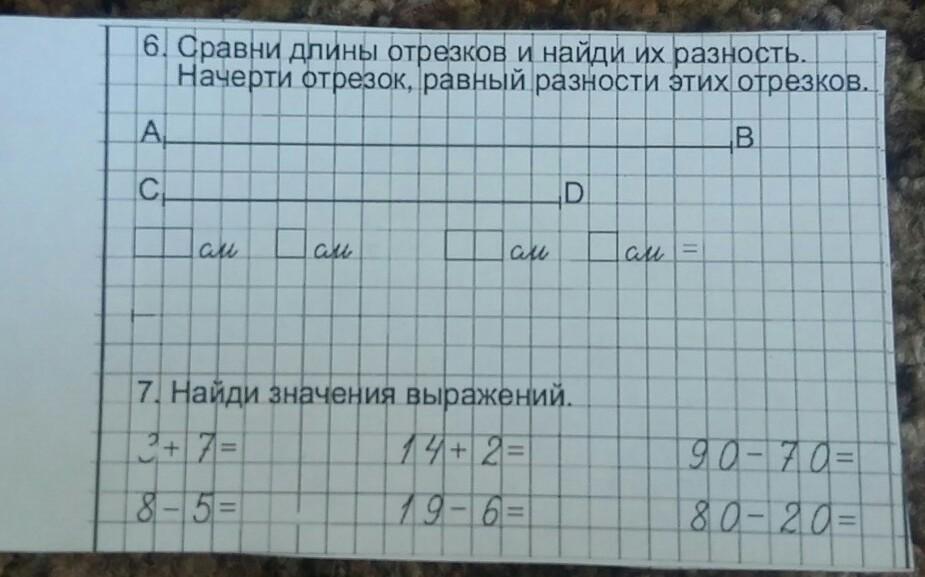 6. Сравни длины отрезков и найди их разность.
Начерти отрезок, равный разности этих отрезков.
A B
C D
см см см см =
7. Найди значения выражений.
3 + 7 = 14 + 2 = 90 - 70 =
8 - 5 = 19 - 6 = 80 - 20 =